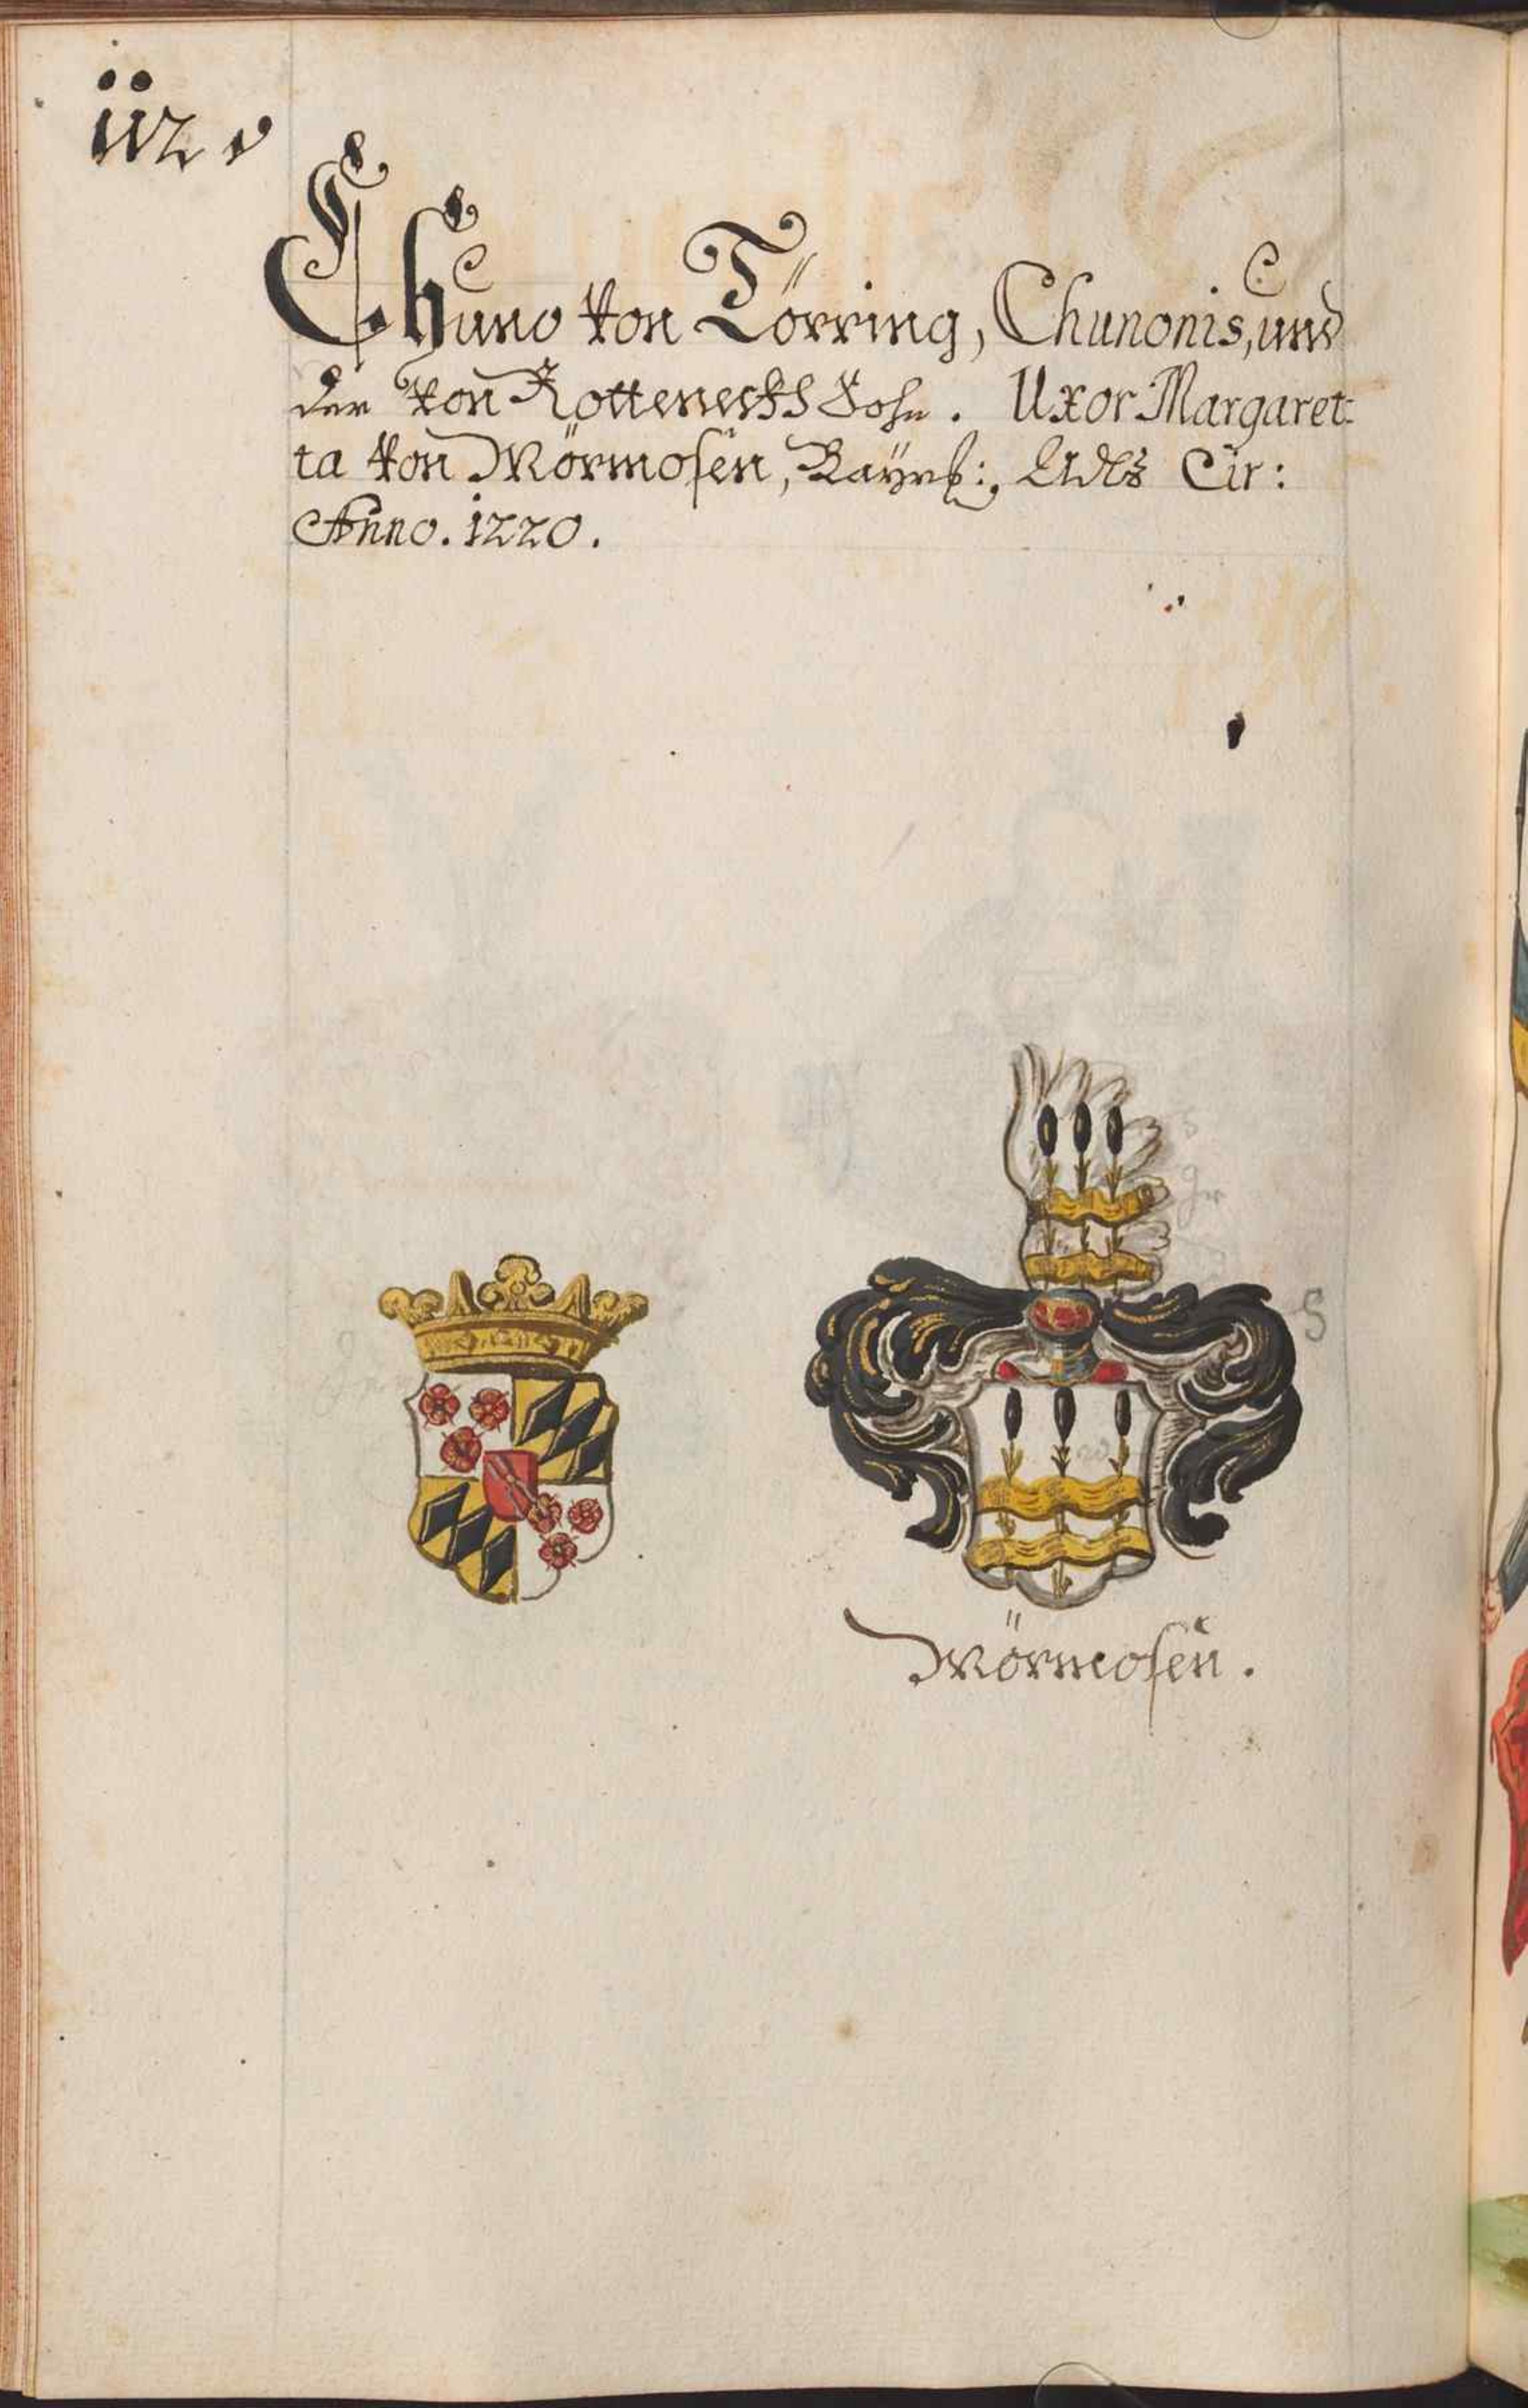 112 v
Chuno von Törring, Chunonis, und
der von Rotteneckh Sohn. Uxor Margaret:
ta von Mörmosen, Bayrs: Adls Cir:
Anno. 1220.
S
Mörmosen.